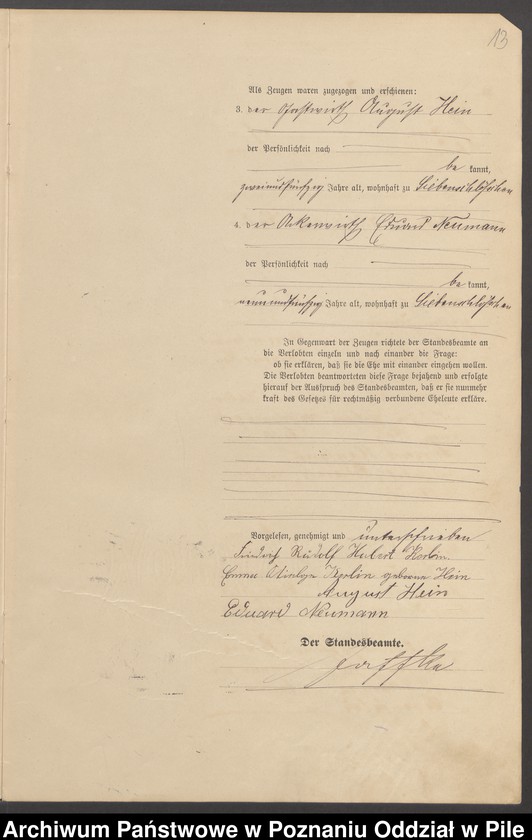 13
Als Zeugen waren zugezogen und erschienen:
3. der Gastwirth August Hein
der Persönlichkeit nach
be kannt,
zweiundfünfzig Jahre alt, wohnhaft zu
4. der Ackerwirth Eduard Neumann
der Persönlichkeit nach
be kannt,
neunundfünfzig Jahre alt, wohnhaft zu
In Gegenwart der Zeugen richtete der Standesbeamte an
die Verlobten einzeln und nach einander die Frage:
ob sie erklären, daß sie die Ehe mit einander eingehen wollen.
Die Verlobten beantworteten diese Frage bejahend und erfolgte
hierauf der Ausspruch des Standesbeamten, daß er sie nunmehr
kraft des Gesetzes für rechtmäßig verbundene Eheleute erkläre.
Vorgelesen, genehmigt und unterschrieben
Friedrich Rudolf Hubert
geborene Hein
August Hein
Eduard Neumann
Der Standesbeamte.
Archiwum Państwowe w Poznaniu Oddział w Pile